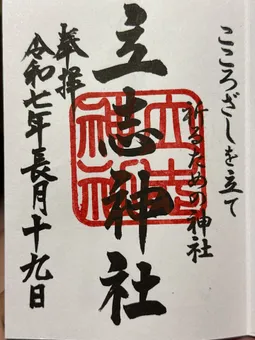 こころざしを立て
祈るための神社
立志神社
奉拝
令和七年長月十九日